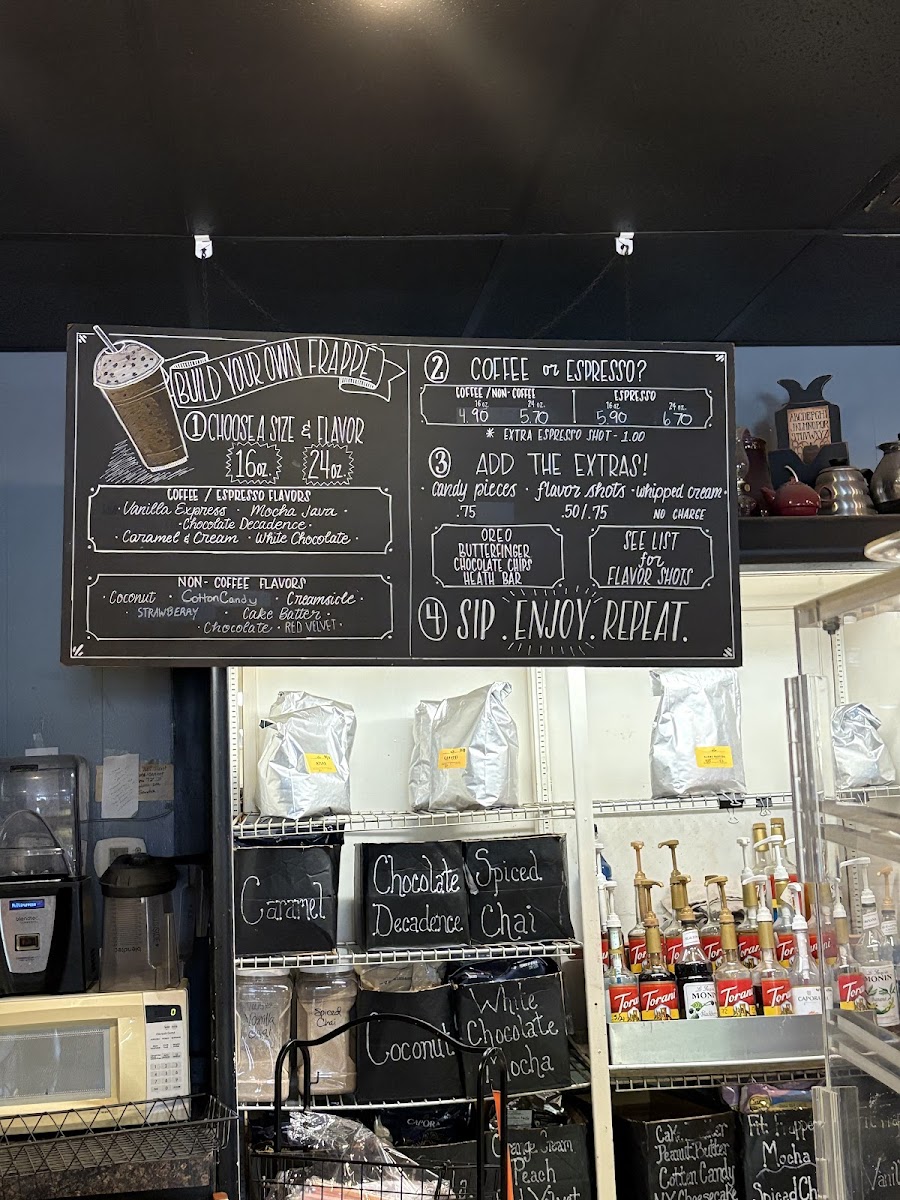 BUILD YOUR OWN FRAPPÉ
1 CHOOSE A SIZE & FLAVOR
16 oz. 24 oz.
COFFEE / ESPRESSO FLAVORS
· Vanilla Express · Mocha Java ·
· Chocolate Decadence ·
· Caramel & Cream · White Chocolate ·
NON-COFFEE FLAVORS
· Coconut · Cotton Candy · Creamsicle ·
· STRAWBERRY Cake Batter ·
· Chocolate · RED VELVET ·
2 COFFEE or ESPRESSO?
COFFEE / NON-COFFEE ESPRESSO
16 oz. 24 oz. 16 oz. 24 oz.
4.90 5.70 5.90 6.70
* EXTRA ESPRESSO SHOT - 1.00
3 ADD THE EXTRAS!
· candy pieces · flavor shots · whipped cream ·
.75 .50/.75 NO CHARGE
OREO
BUTTERFINGER
CHOCOLATE CHIPS
HEATH BAR
SEE LIST
for
FLAVOR SHOTS
4 SIP. ENJOY. REPEAT.
Caramel
Chocolate
Decadence
Spiced
Chai
Vanilla
Spiced
Chai
Coconut
White
Chocolate
Mocha
Torani
Torani
MONIN
Torani
Torani
CAPORA
Torani
MONIN
Peach
Peanut Butter
Cotton Candy
NY Cheesecake
Mocha
0